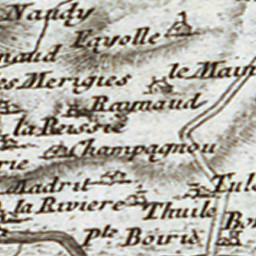 Naudy
Fayolle
naud
es Merigies
le Main
Raynaud
la Reissie
Champagnou
rie
Madrit
Tule
la Riviere
Thuile
Bo
pte Boirie